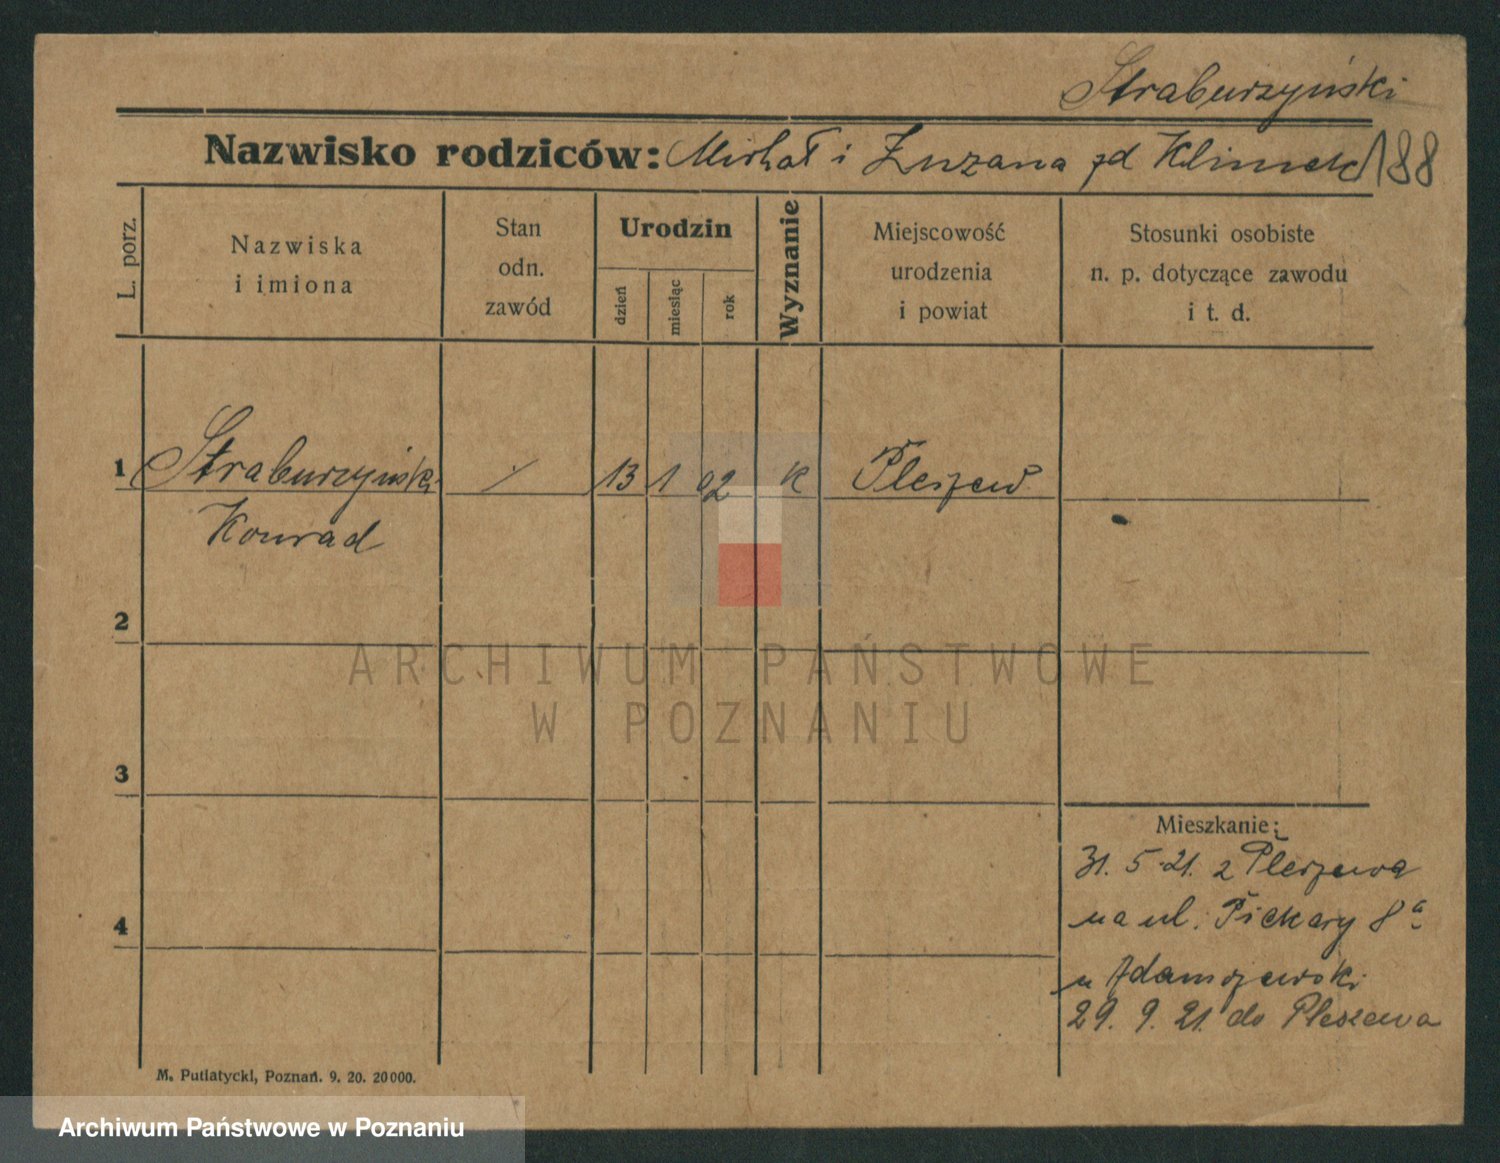 Straburzyński
Nazwisko rodziców: Michał i Zuzana zd Klimek 188
L. porz.
Nazwiska
i imiona
Stan
odn.
zawód
Urodzin
dzień
miesiąc
rok
Wyznanie
Miejscowość
urodzenia
i powiat
Stosunki osobiste
n. p. dotyczące zawodu
i t. d.
1 Straburzyński 13 1 02 K Pleszew
Konrad
2
ARCHIWUM PAŃSTWOWE
W POZNANIU
3
Mieszkanie:
31. 5. 21. z Pleszewa
na ul. Piekary 8a
4
u Adamszewski
29. 9. 21. do Pleszewa
M. Putiatycki, Poznań. 9. 20. 20000.
Archiwum Państwowe w Poznaniu